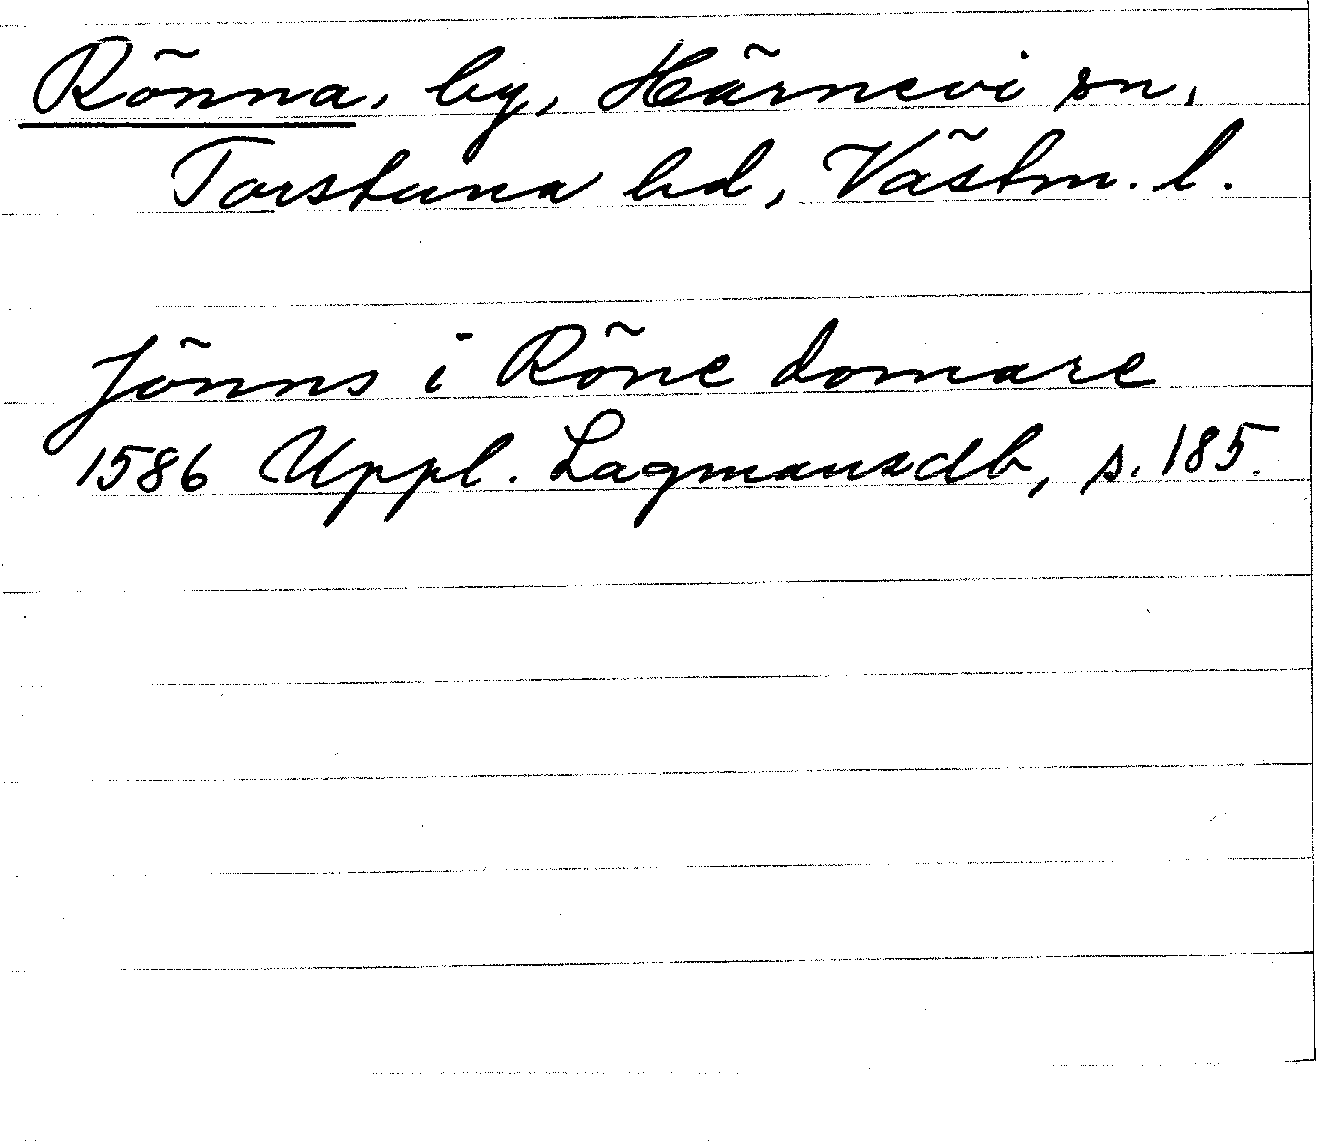 Rönna, by, Härnevi sn,
Torstuna hd, Västm. l.
Jönns i Röne domare
1586 Uppl. Lagmansdb, s. 185.